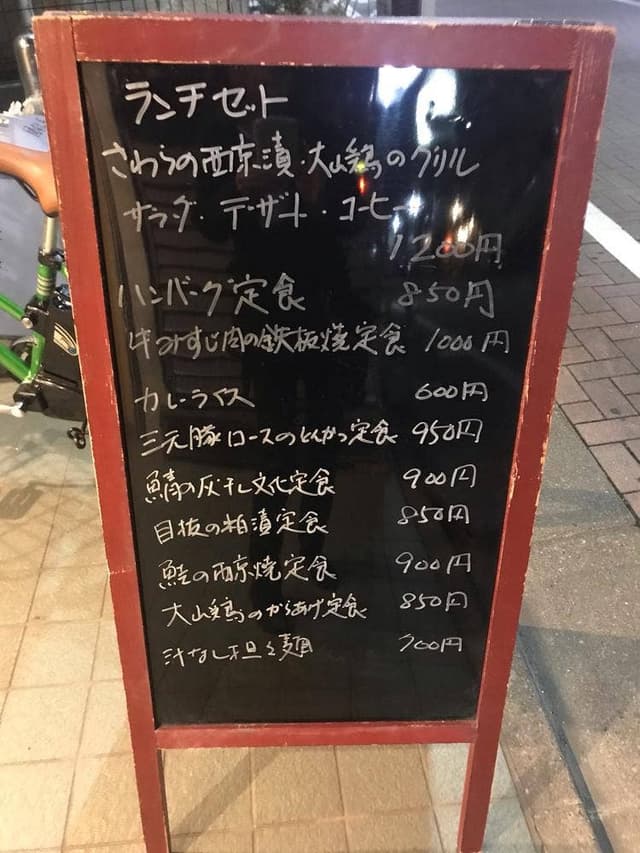 ランチセット
さわらの西京漬・大山鶏のグリル
サラダ・デザート・コーヒー
1200円
ハンバーグ定食 850円
牛みすじ肉の鉄板焼定食 1000円
カレーライス 600円
三元豚ロースのとんかつ定食 950円
鯖の灰干し文化定食 900円
目抜の粕漬定食 850円
鮭の西京焼定食 900円
大山鶏のからあげ定食 850円
汁なし担々麺 700円